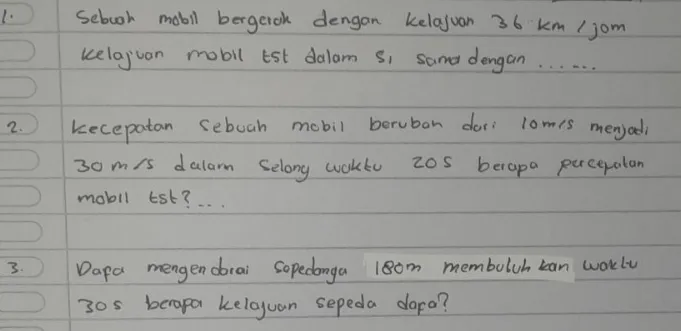 1. Sebuah mobil bergerak dengan kelajuan 36 km / jam
kelajuan mobil tst dalam SI sama dengan ......
2. kecepatan sebuah mobil berubah dari 10 m/s menjadi
30 m/s dalam selang waktu 20 s berapa percepatan
mobil tst? ...
3. Dafa mengendarai sepedanya 180m membutuhkan waktu
30 s berapa kelajuan sepeda dafa?